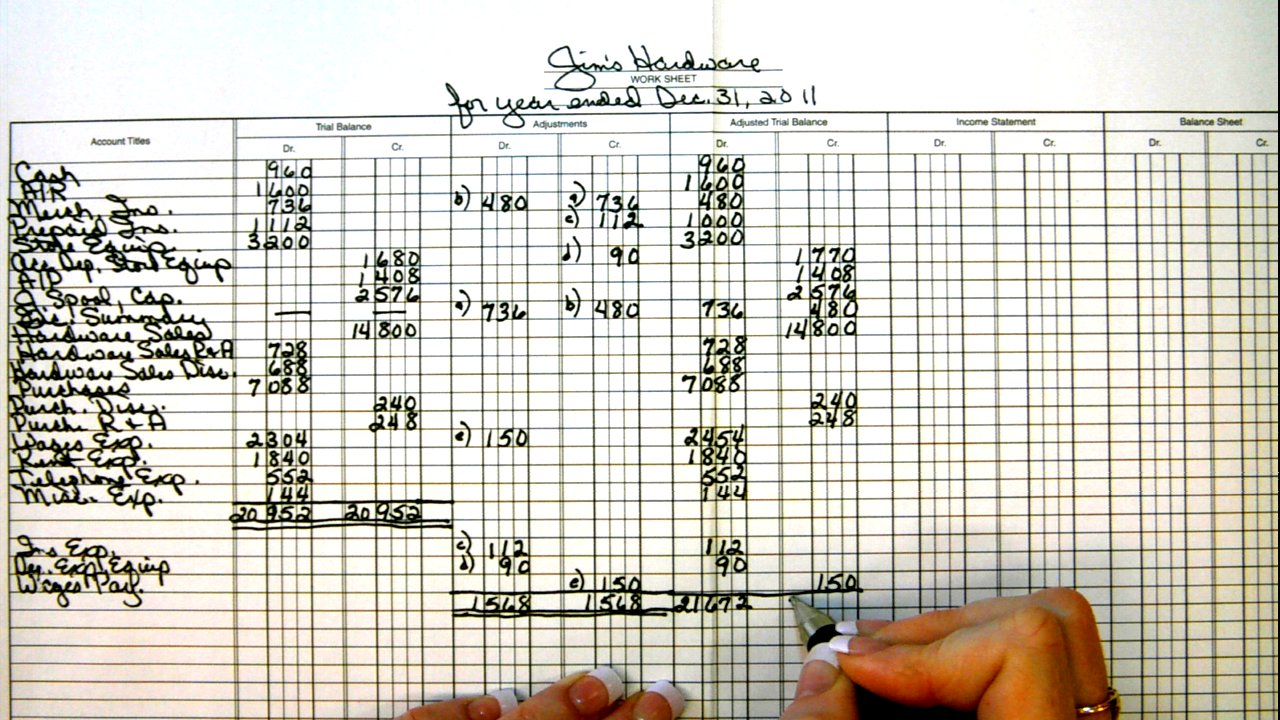 Jim's Hardware
WORK SHEET
for year ended Dec. 31, 2011
Account Titles Trial Balance Adjustments Adjusted Trial Balance Income Statement Balance Sheet
Dr. Cr. Dr. Cr. Dr. Cr. Dr. Cr. Dr. Cr.
Cash 960 960
A/R 1600 1600
Merch. Ins. 736 b) 480 a) 736 480
Prepaid Ins. 1112 c) 112 1000
Store Equip. 3200 3200
Acc. Dep. Store Equip 1680 d) 90 1770
A/P 1408 1408
Spool, Cap. 2576 2576
Summary — — a) 736 b) 480 736 480
Hardware Sales 14800 14800
Hardware Sales R&A 728 728
Hardware Sales Disc. 688 688
Purchases 7088 7088
Purch. Disc. 240 240
Purch. R & A 248 248
Wages Exp. 2304 e) 150 2454
Rent Exp. 1840 1840
Telephone Exp. 552 552
Misc. Exp. 144 144
20952 20952
Ins Exp. c) 112 112
Dep. Exp. Equip d) 90 90
Wages Pay. e) 150 150
1568 1568 21672